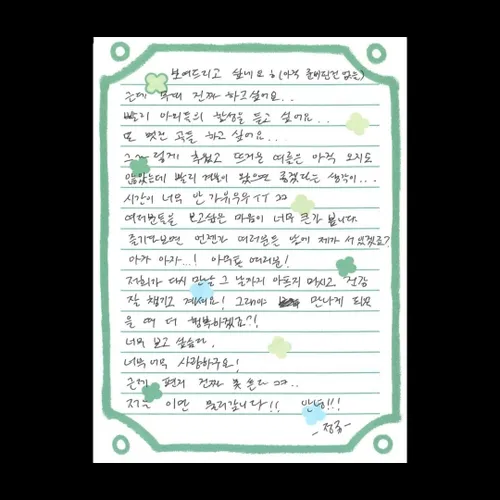 보여드리고 싶네요ㅎ(아직 준비된건 없음)
근데 콕때 진짜 하고싶어요..
빨리 아미들의 함성을 듣고 싶어요..
또 멋진 곡들 하고 싶어요...
그렇게 춥고 뜨거운 여름은 아직 오지도
않았는데 빨리 겨울이 왔으면 좋겠다는 생각이...
시간이 너무 안 가유우우ㅠㅠ
여러분들을 보고싶은 마음이 너무 큰가 봅니다.
즐기다보면 언젠가 여러분들 앞에 제가 서있겠죠?
아자 아자...! 아무튼 여러분!
저희가 다시 만날 그 날까지 아프지 마시고 건강
잘 챙기고 계세요! 그래야 만나게 되
을 때 더 행복하겠죠?!
너무 보고 싶습다,
너무너무 사랑하구요!
근데 편지 진짜 못 쓴다
저는 이만 물러갑니다!! 안녕!!!
-정국-